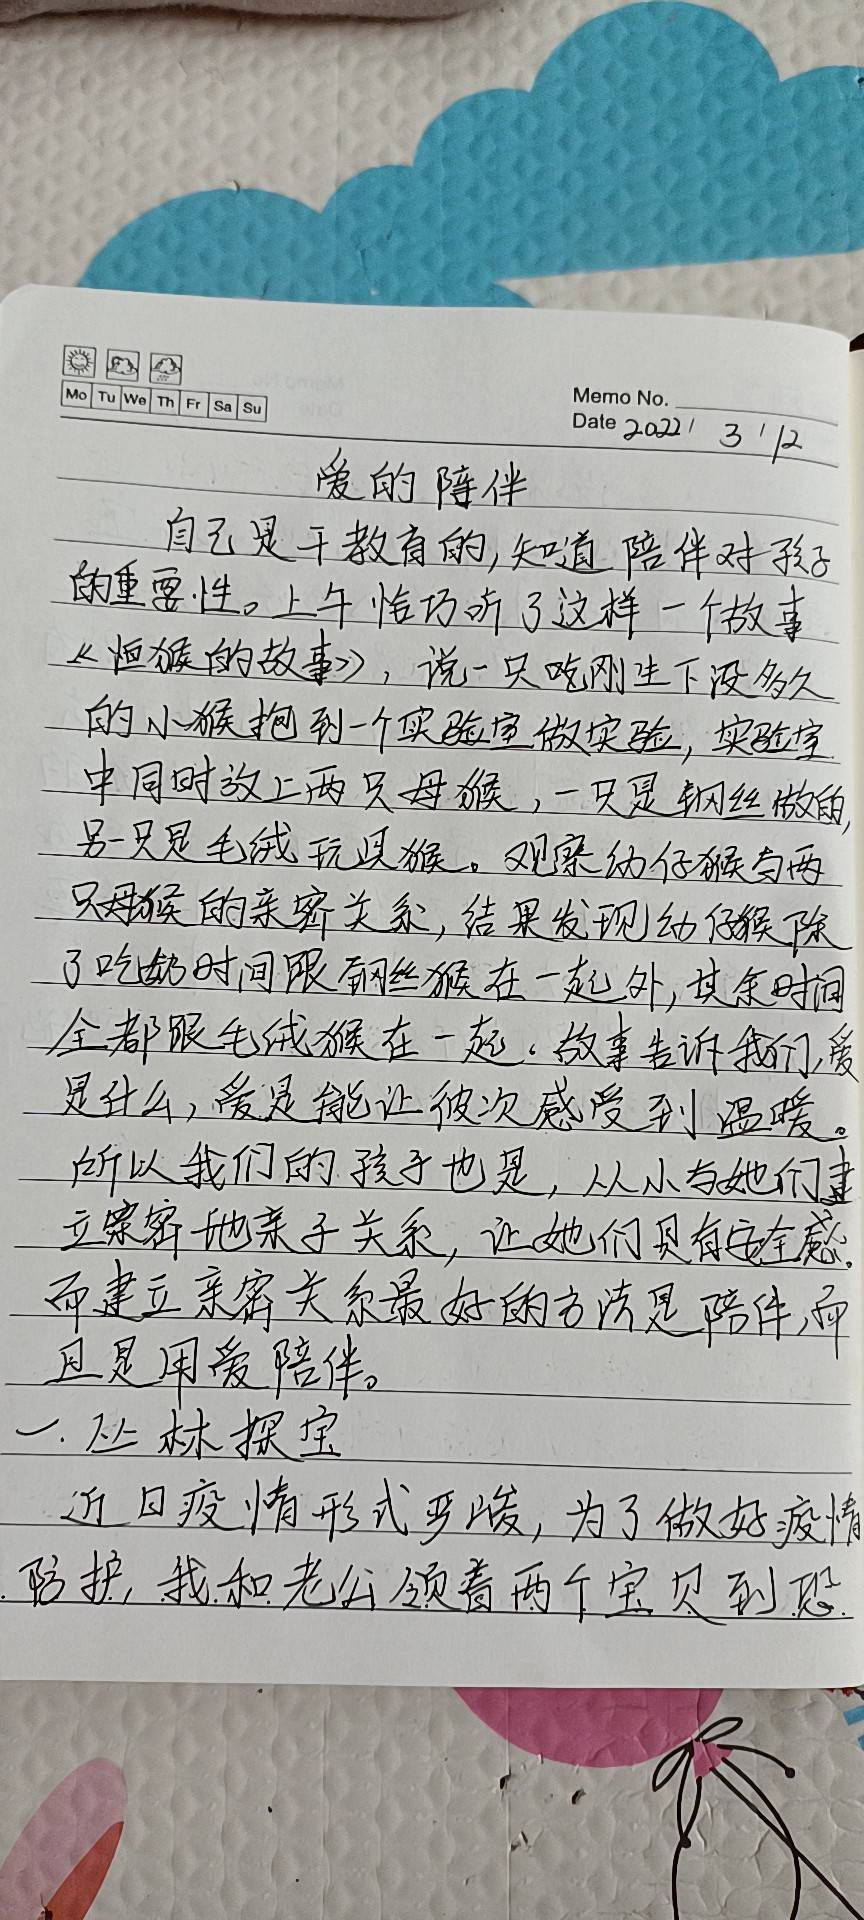 Mo Tu We Th Fr Sa Su
Memo No.
Date 2022 / 3 / 12
爱的陪伴
自己是干教育的,知道陪伴对孩子
的重要性。上午恰巧听了这样一个故事
《恒猴的故事》,说一只吃刚生下没多久
的小猴抱到一个实验室做实验,实验室
中同时放上两只母猴,一只是钢丝做的,
另一只是毛绒玩具猴。观察幼仔猴与两
只母猴的亲密关系,结果发现幼仔猴除
了吃奶时间跟钢丝猴在一起外,其余时间
全都跟毛绒猴在一起。故事告诉我们,爱
是什么,爱是能让彼次感受到温暖。
所以我们的孩子也是,从小与她们建
立亲密地亲子关系,让她们具有安全感。
而建立亲密关系最好的方法是陪伴,而
且是用爱陪伴。
一.丛林探宝
近日疫情形式严峻,为了做好疫情
防护,我和老公领着两个宝贝到恐